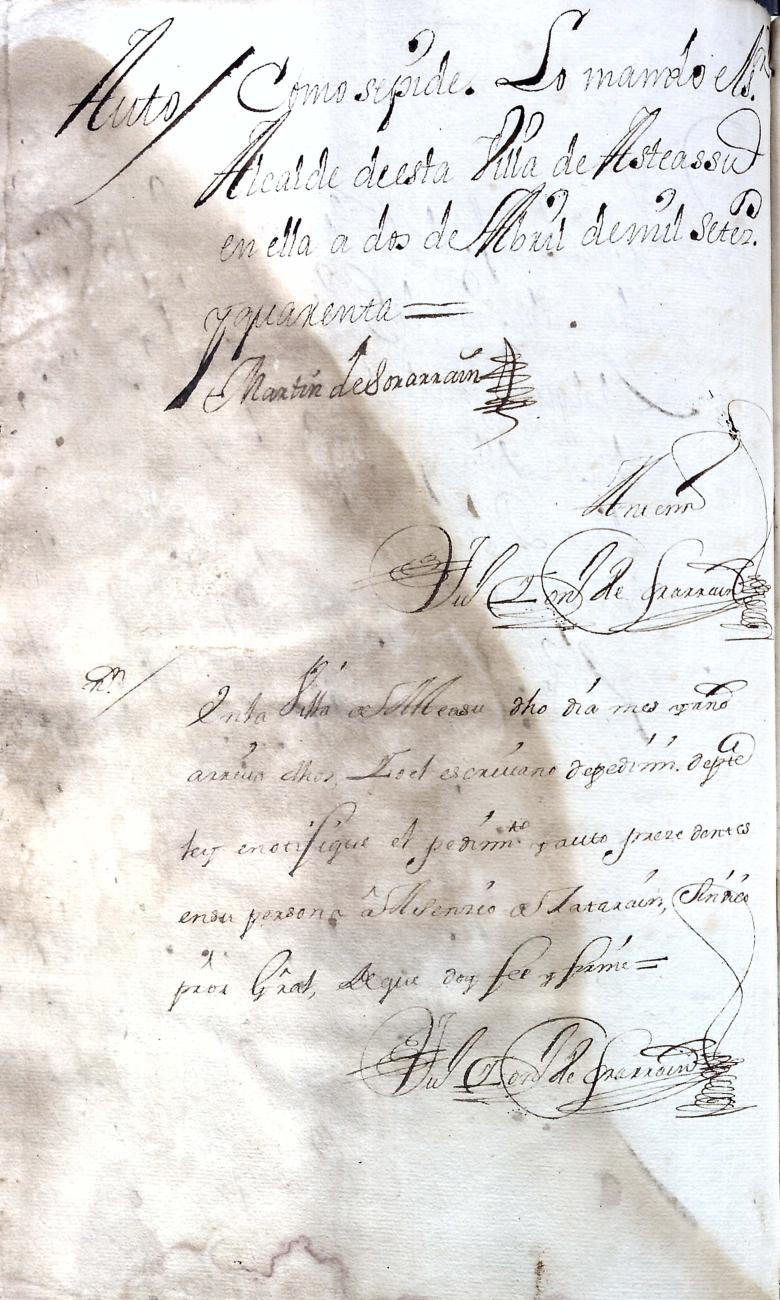 Auto / Como se pide. Lo mando el S.r
Alcalde de esta Villa de Asteassu
en ella a dos de Abril de mil Setez.
y quarenta =
Martin de Sorarrain
Ante mi
de Sorarrain
En la Villa de Asteasu dho dia mes y año
arriva dhos, Yo el escrivano de pedimi.to de pte
ley e notifique el pedimi.to y auto preze dentes
en su persona â Asenzio de Zatarain, Sindico
pror Gral, de que doy fee y firmè =
de Sorarrain